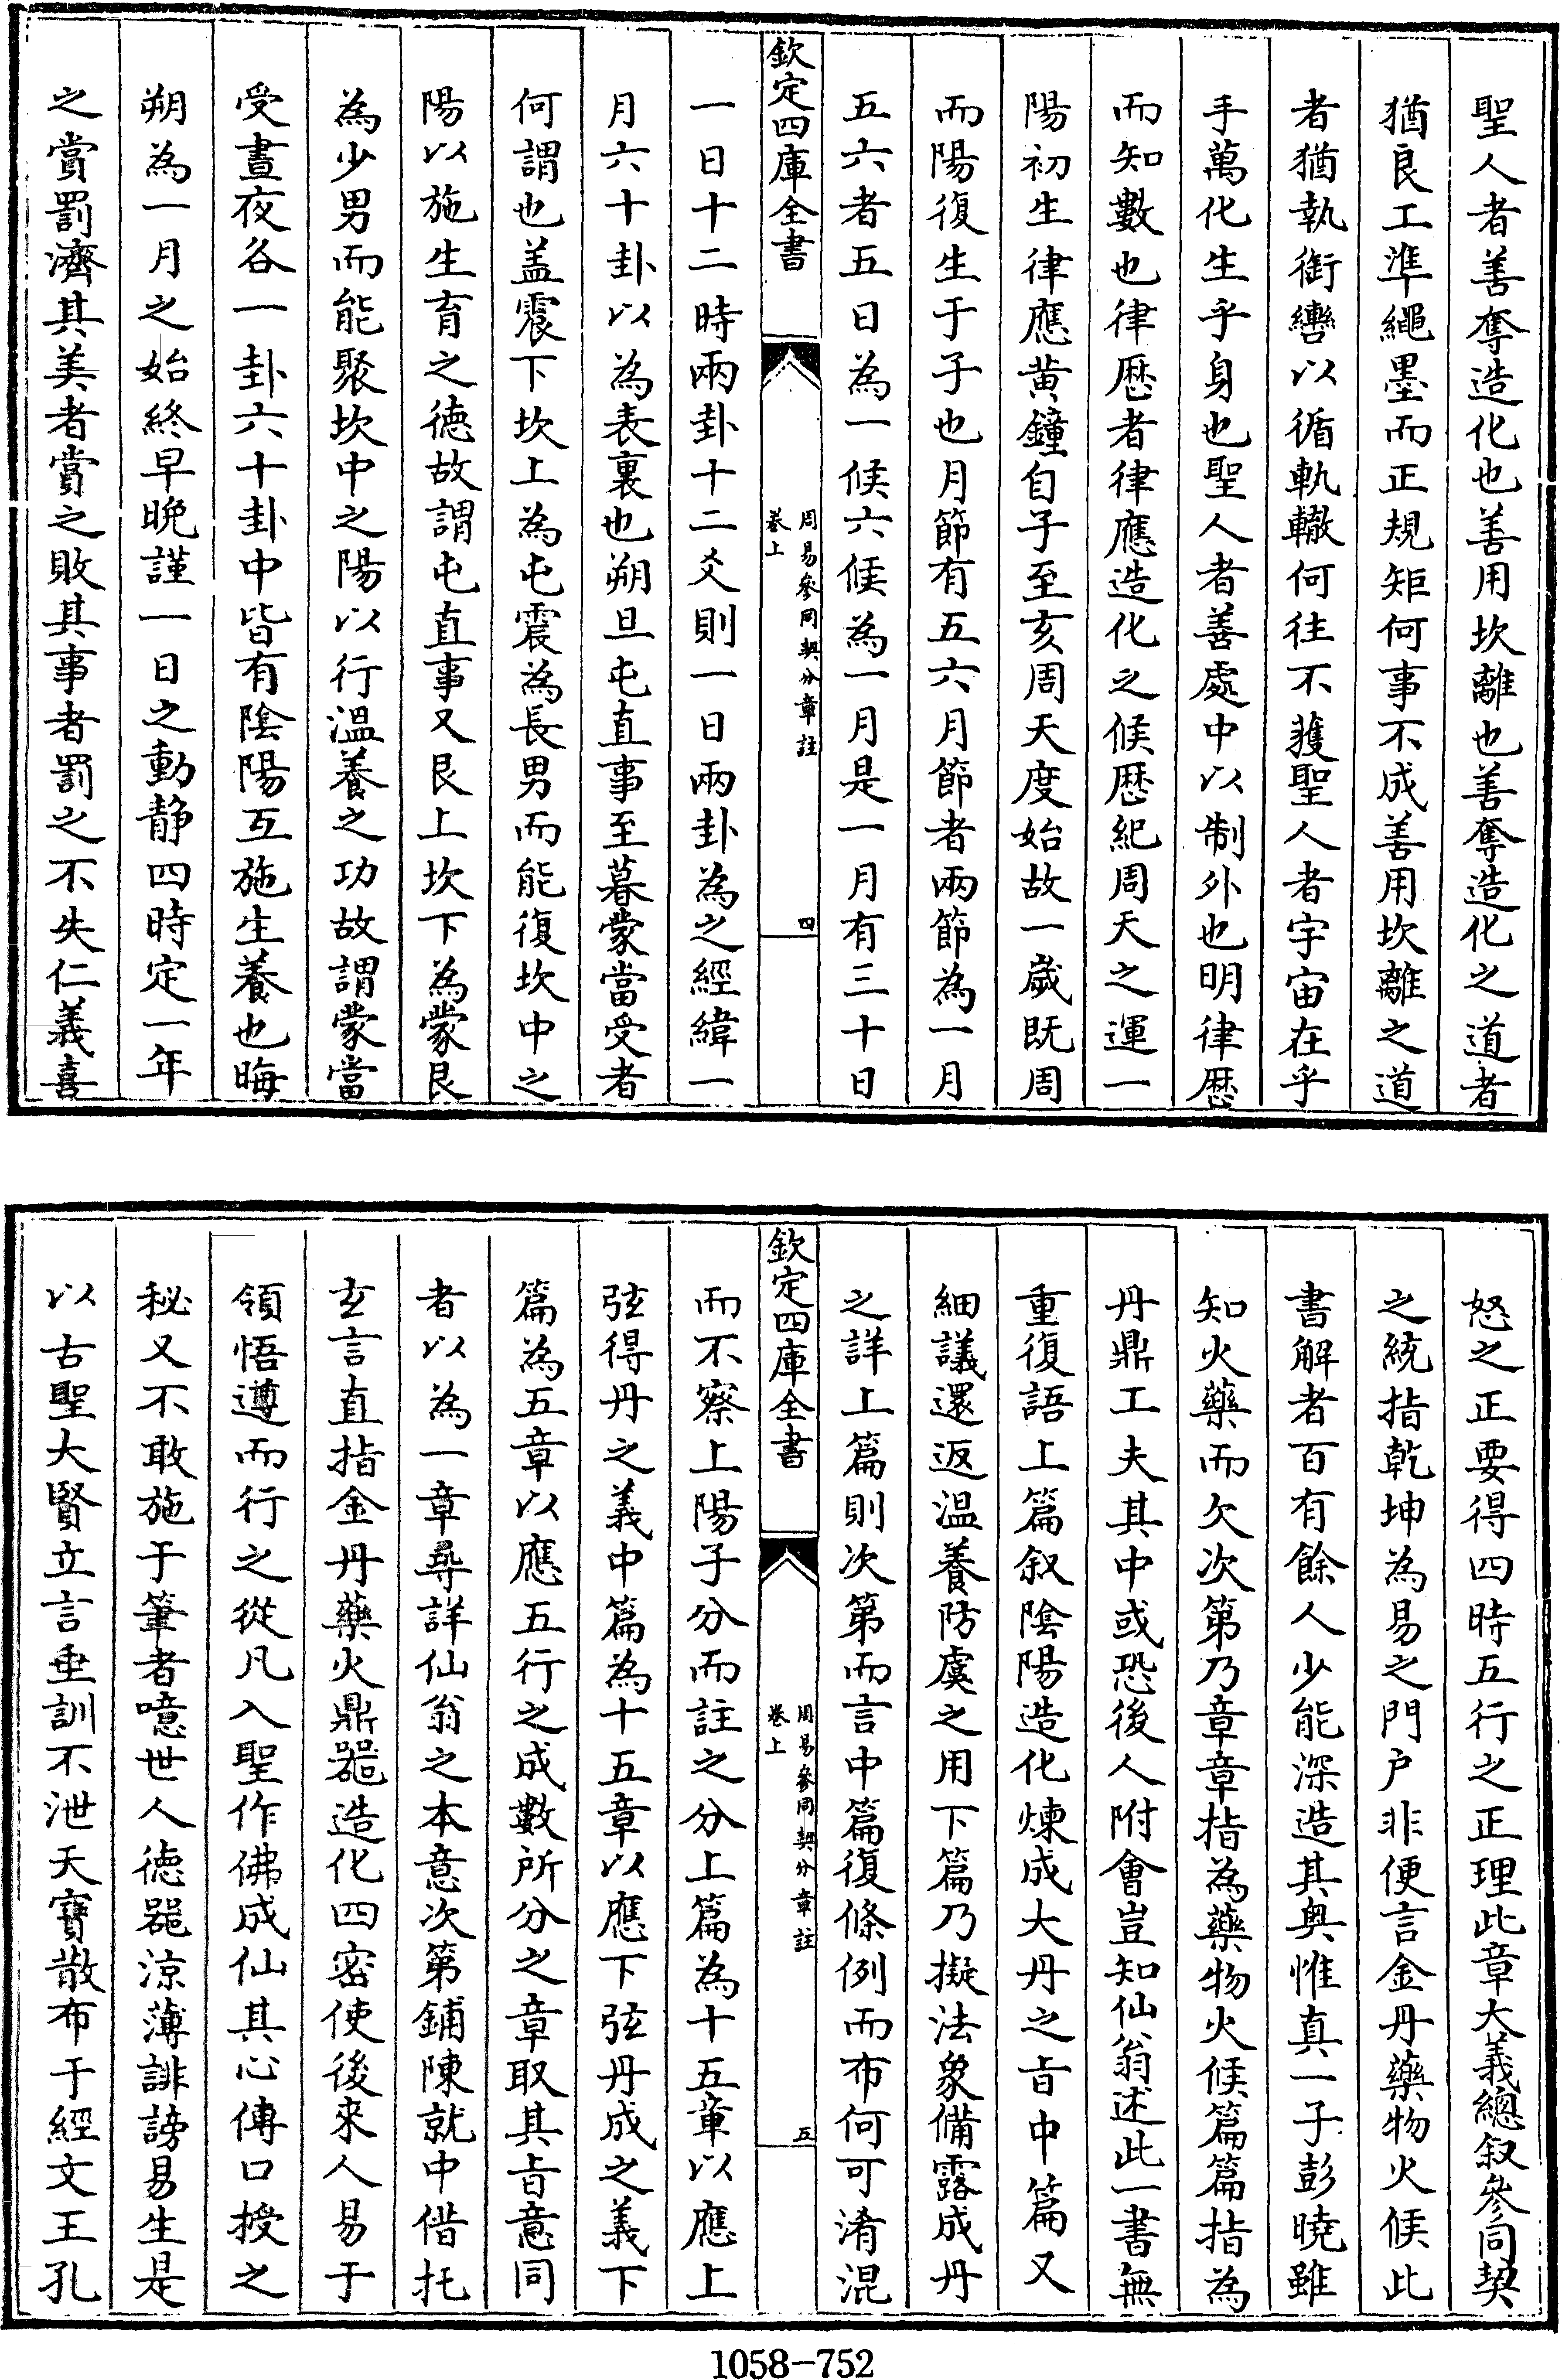 聖人者善奪造化也善用坎離也善奪造化之道者
猶良工準繩墨而正規矩何事不成善用坎離之道
者猶執銜轡以循軌轍何徃不獲聖人者宇宙在乎
手萬化生乎身也聖人者善處中以制外也明律厯
而知數也律厯者律應造化之候厯紀周天之運一
陽初生律應黄鐘自子至亥周天度始故一歲既周
而陽復生于子也月節有五六月節者兩節為一月
五六者五日為一候六候為一月是一月有三十日
欽定四庫全書
周易參同契分章註
卷上
四
一日十二時兩卦十二爻則一日兩卦為之經緯一
月六十卦以為表裏也朔旦屯直事至暮蒙當受者
何謂也盖震下坎上為屯震為長男而能復坎中之
陽以施生育之德故謂屯直事又艮上坎下為蒙艮
為少男而能聚坎中之陽以行溫養之功故謂蒙當
受晝夜各一卦六十卦中皆有陰陽互施生養也晦
朔為一月之始終早晚謹一日之動静四時定一年
之賞罰濟其美者賞之敗其事者罰之不失仁義喜
怒之正要得四時五行之正理此章大義總叙參同契
之統指乾坤為易之門户非便言金丹藥物火候此
書解者百有餘人少能深造其奥惟真一子彭曉雖
知火藥而欠次第乃章章指為藥物火候篇篇指為
丹鼎工夫其中或恐後人附會豈知仙翁述此一書無
重復語上篇叙陰陽造化煉成大丹之旨中篇又
細議還返溫養防虞之用下篇乃擬法象備露成丹
之詳上篇則次第而言中篇復條例而布何可淆混
欽定四庫全書
周易參同契分章註
卷上
五
而不察上陽子分而註之分上篇為十五章以應上
弦得丹之義中篇為十五章以應下弦丹成之義下
篇為五章以應五行之成數所分之章取其旨意同
者以為一章尋詳仙翁之本意次第鋪陳就中借托
玄言直指金丹藥火鼎器造化四密使後來人易于
領悟遵而行之從凡入聖作佛成仙其心傳口授之
秘又不敢施于筆者噫世人德器涼薄誹謗易生是
以古聖大賢立言垂訓不泄天寶散布于經文王孔
1058-752